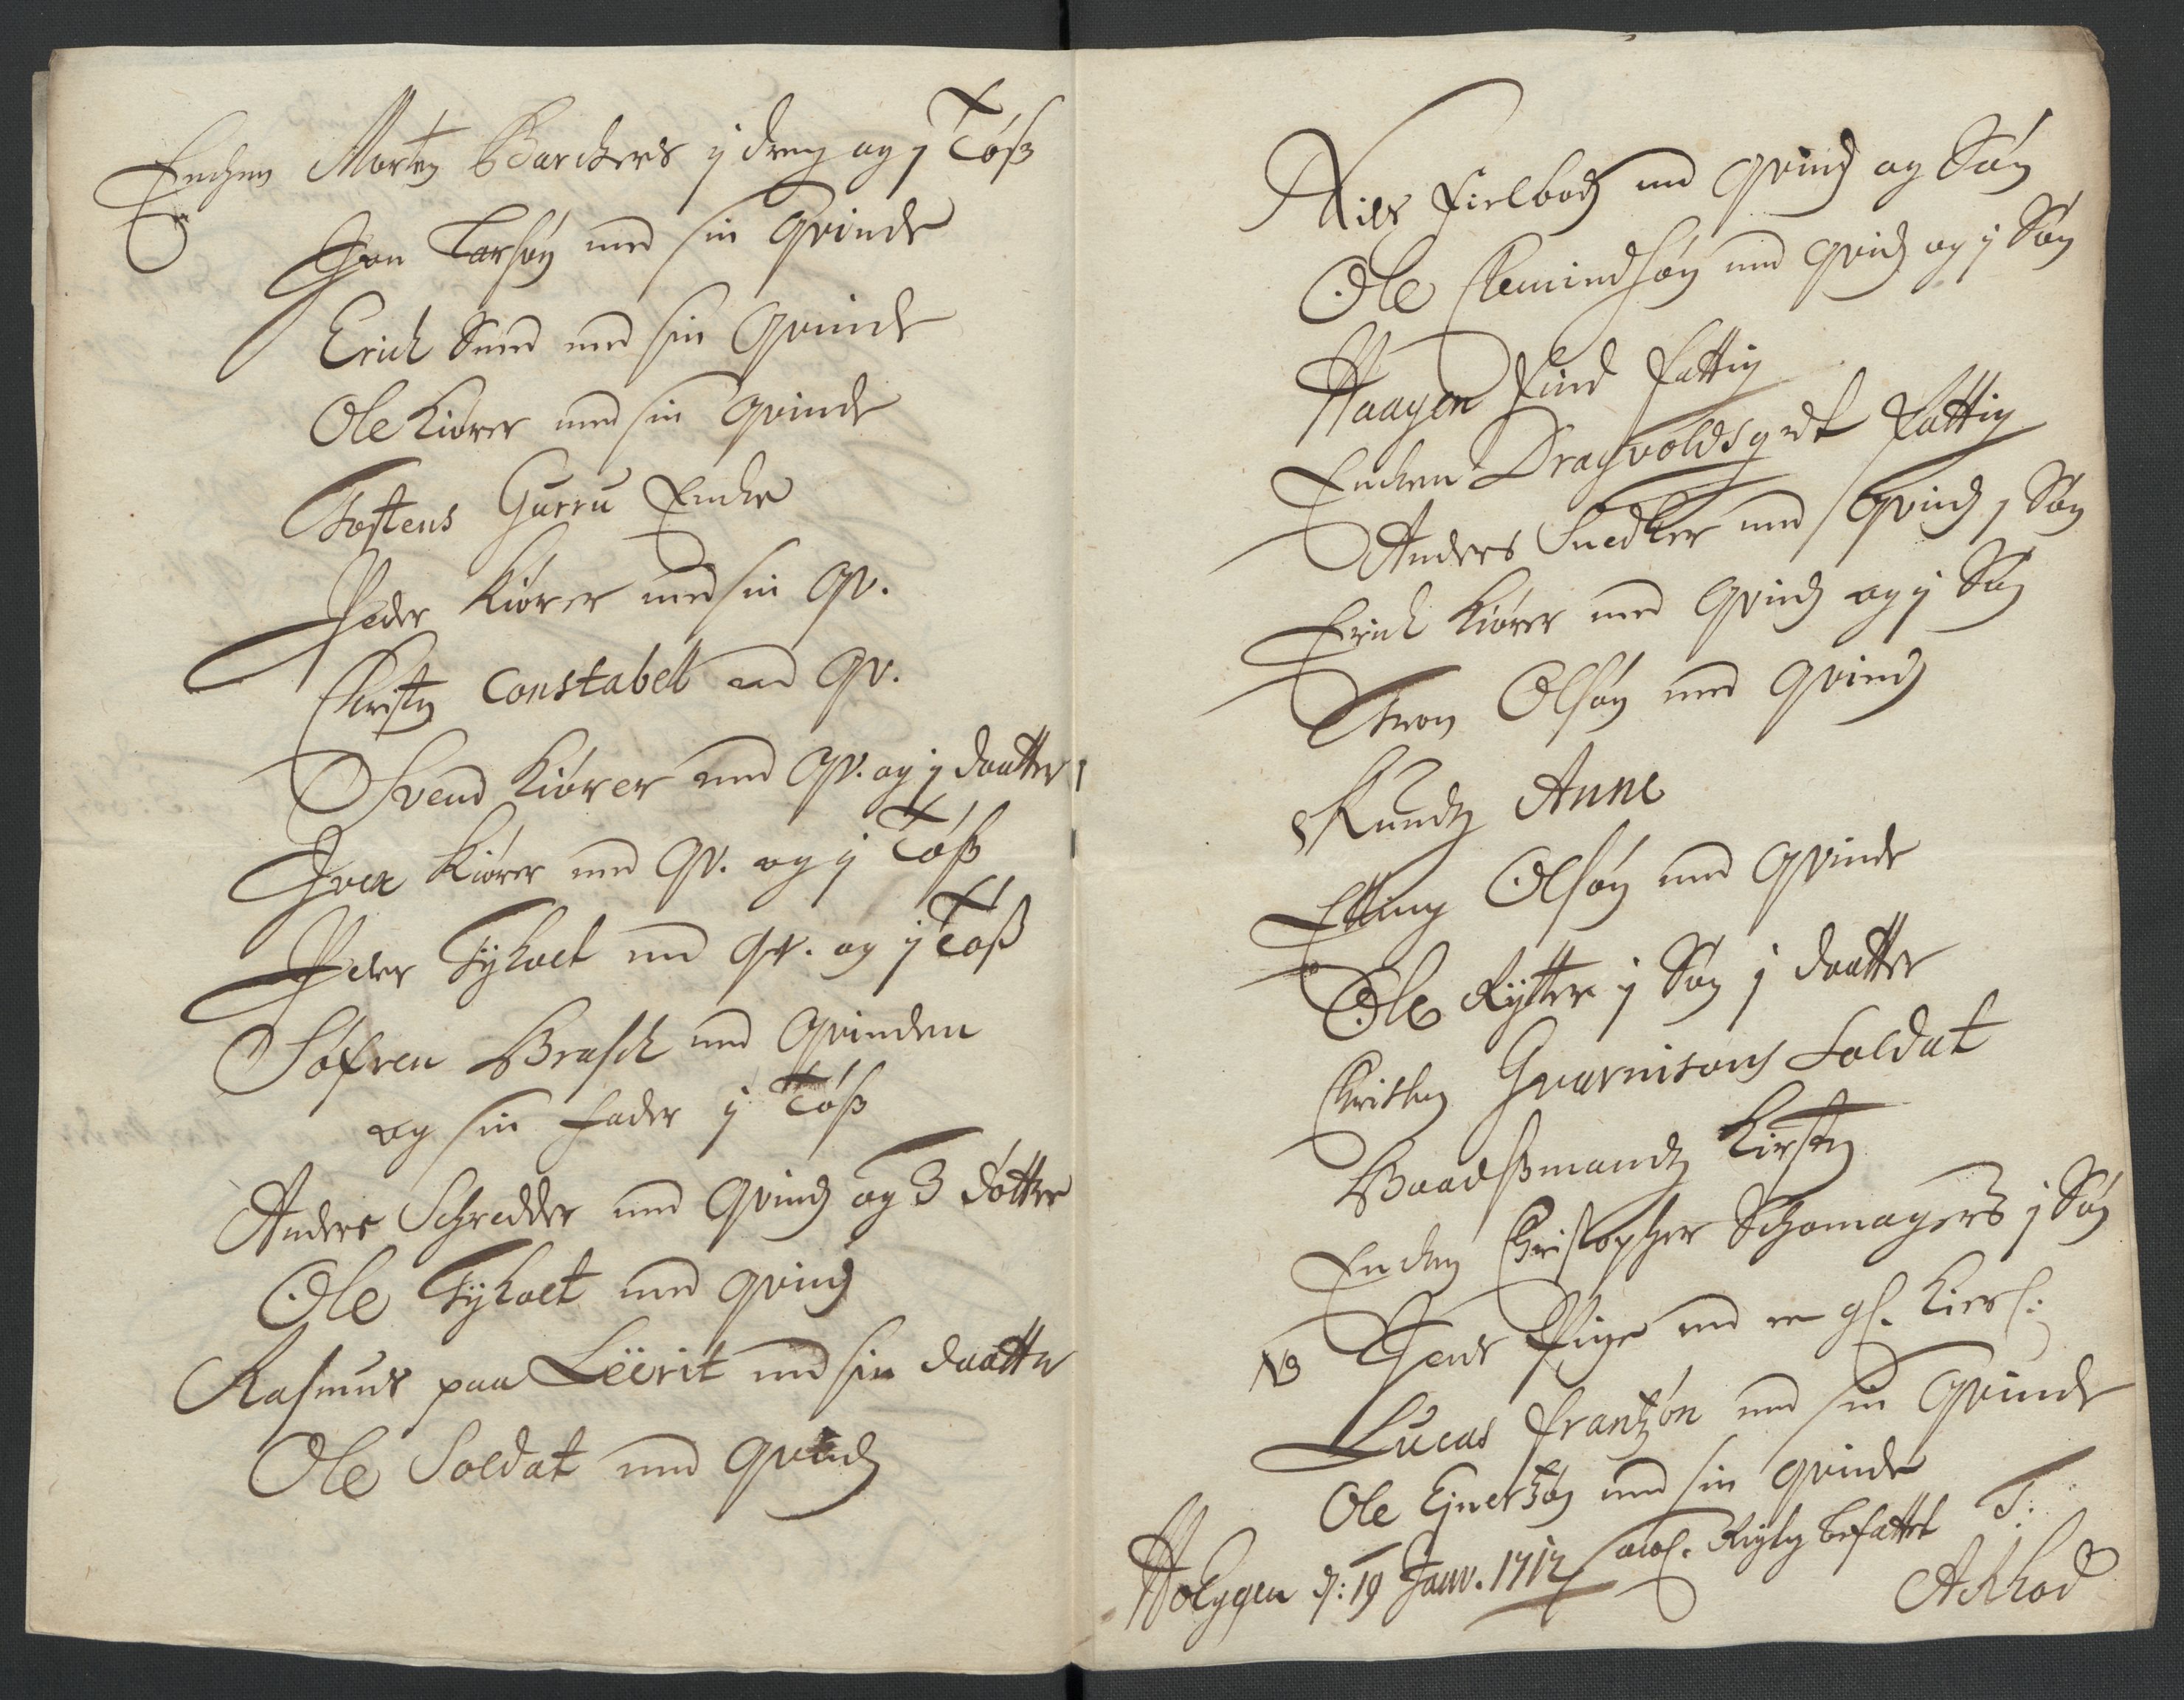 Enchen Morten Barchers j dreng og j Tøß
Jon Larsøn med sin Qvinde
Erich Smed med sin Qvinde
Ole Kiører med sin Qvinde
Tostens Gurru Encke
Peder Kiører med sin Qv.
Christen Constabel med Qv.
Svend Kiører med Qv. og j daatter
Iver Kiører med Qv. og j Tøß
Peder Tyholt med Qv. og j Tøß
Søfren Brasch med Qvinden
og sin fader j Tøß
Anders Schredder med Qvinde og 3 døttre
Ole Tyholt med qvinde
Rasmus paa Leerit med sin daatter
Ole Soldat med qvinde
Niels Fielbod med qvinde og Søn
Ole Clemindsøn med qvinde og j Søn
Haagen Find fattig
Encken Dragvolds fattig
Anders Snedker med Qvinde j Søn
Erich Kiører med Qvinde og j Søn
Tron Olsøn med qvinde
Knudtz Anne
Elling Olsøn med qvinde
Ole Rytter j Søn j daatter
Christen Gvarnisons Soldat
Baadßmandtz Kirsten
Encken Christopher Schomagers j Søn
NB Jens Pige med en gl. Kierl:
Lucas Frantzøn med sin Qvinde
Ole Ejnertzøn med sin qvinde
d: 19 Janv. 1712 Rigtig befattet T: